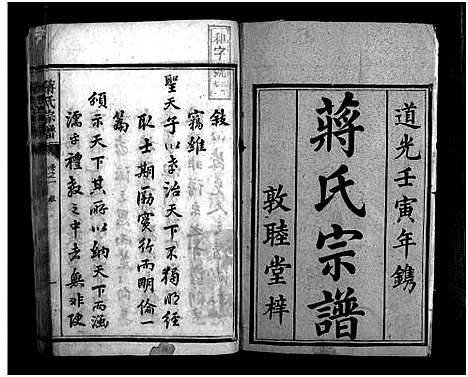 道光壬寅年鐫
蔣氏宗譜
敦睦堂梓
和字號
敍
竊維
聖天子以孝治天下不獨明經
取士期勵實行而明倫一
篇
頒示天下其所以納天下而涵
濡于禮教之中者無非使
蔣氏宗譜